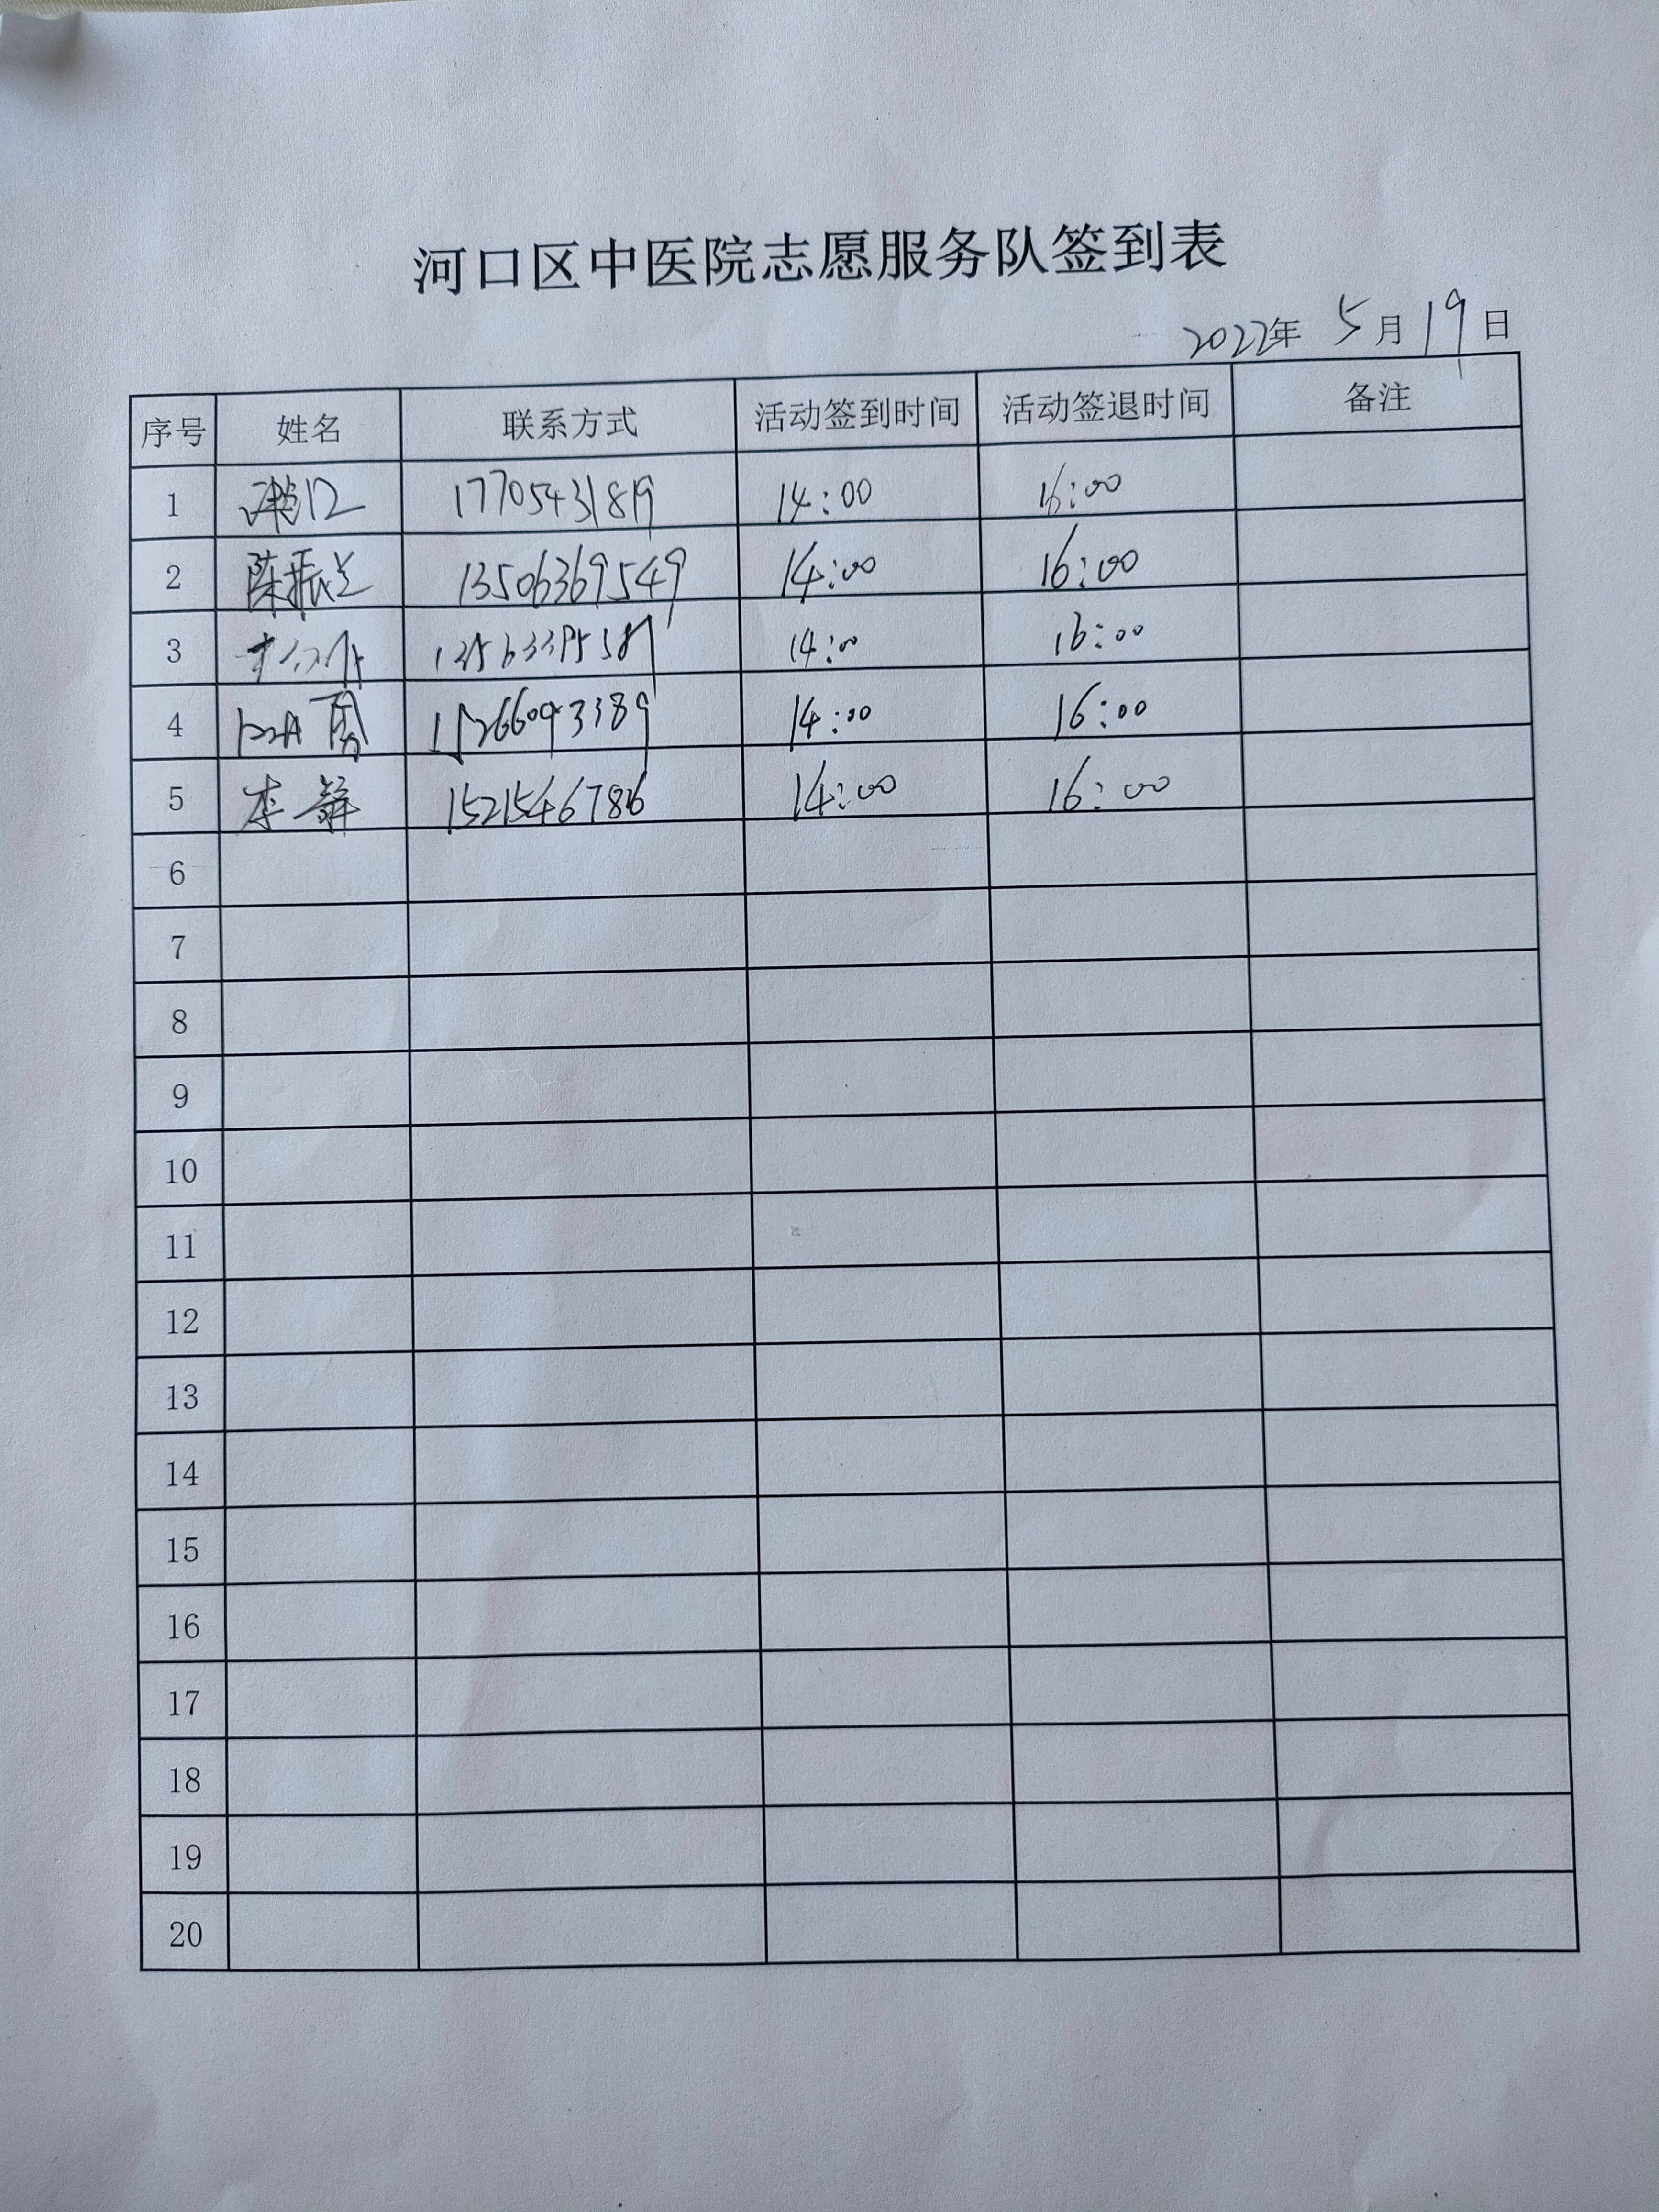 河口区中医院志愿服务队签到表
2022年 5月19日
序号 姓名 联系方式 活动签到时间 活动签退时间 备注
1 17705431819 14:00 16:00
2 陈振兰 13506369549 14:00 16:00
3 14:00 16:00
4 15266093389 14:00 16:00
5 李静 14:00 16:00
6
7
8
9
10
11
12
13
14
15
16
17
18
19
20